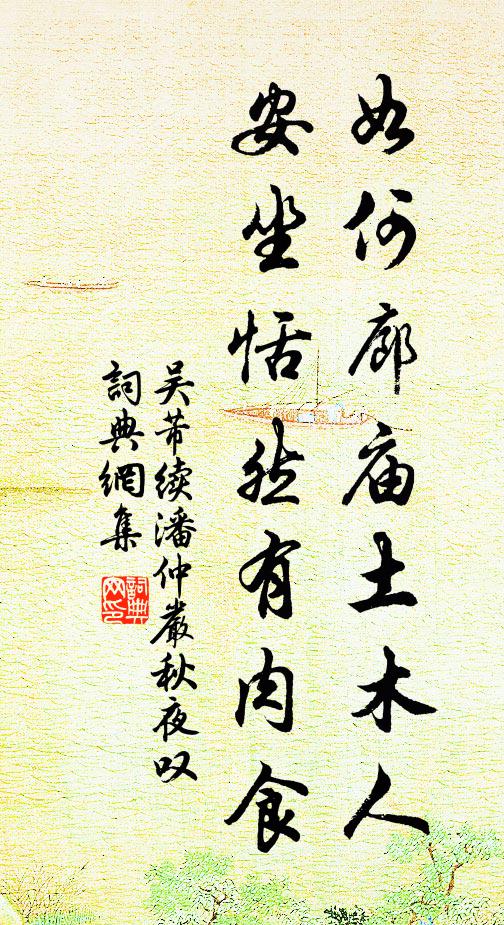 如何廊庙土木人
安坐恬然有肉食
吴芾续潘仲严秋夜叹
詞典網集
詞典网印